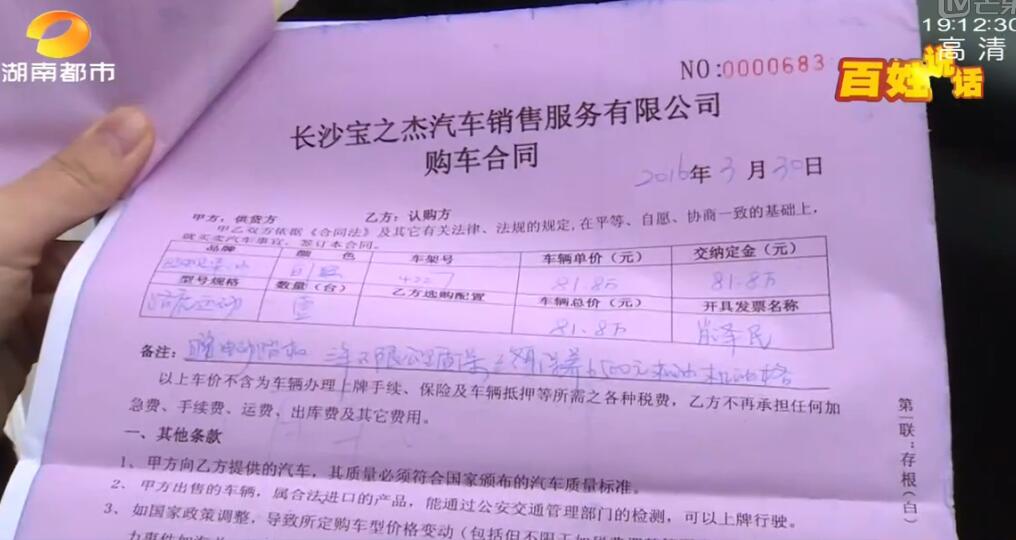 湖南都市
19:12:30
高清
百姓说话
NO:0000683
长沙宝之杰汽车销售服务有限公司
购车合同
2016年3月30日
甲方：供货方 乙方：认购方
甲乙双方依据《合同法》及其它有关法律、法规的规定，在平等、自愿、协商一致的基础上，
就买卖汽车事宜，签订本合同。
品牌 颜色 车架号 车辆单价（元） 交纳定金（元）
4227 81.8万 81.8万
型号规格 数量（台） 乙方选购配置 车辆总价（元） 开具发票名称
路虎运动 壹 81.8万 肖泽民
备注：
以上车价不含为车辆办理上牌手续、保险及车辆抵押等所需之各种税费，乙方不再承担任何加
急费、手续费、运费、出库费及其它费用。
一、其他条款
1、甲方向乙方提供的汽车，其质量必须符合国家颁布的汽车质量标准。
2、甲方出售的车辆，属合法进口的产品，能通过公安交通管理部门的检测，可以上牌行驶。
3、如国家政策调整，导致所定购车型价格变动（包括但不限于如
第一联：存根（白）